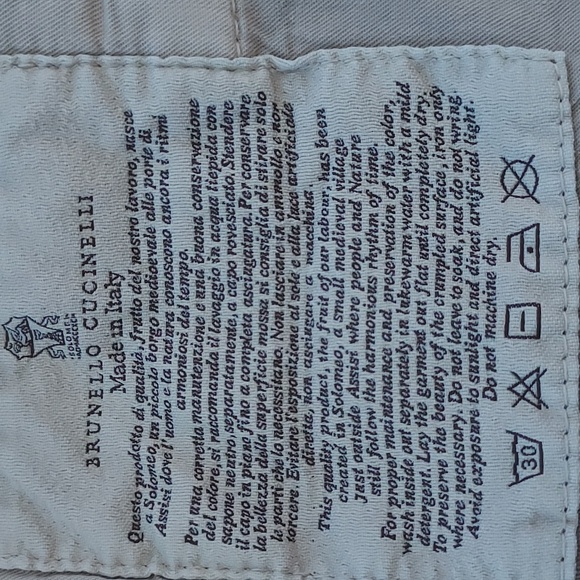 BRUNELLO CUCINELLI
Made in Italy
Questo prodotto di qualità, frutto del nostro lavoro, nasce
a Solomeo, un piccolo borgo medioevale alle porte di
Assisi dove l'uomo e la natura conoscono ancora i ritmi
armoniosi del tempo.
Per una corretta manutenzione e una buona conservazione
del colore, si raccomanda il lavaggio in acqua tiepida con
sapone neutro separatamente, a capo rovesciato. Stendere
il capo in piano fino a completa asciugatura. Per conservare
la bellezza della superficie mossa si consiglia di stirare solo
le parti che lo necessitano. Non lasciare in ammollo e non
torcere. Evitare l'esposizione al sole e alla luce artificiale
diretta, non asciugare a macchina.
This quality product, the fruit of our labour, has been
created in Solomeo, a small medieval village
just outside Assisi where people and Nature
still follow the harmonious rhythm of time.
For proper maintenance and preservation of the color,
wash inside out separately in lukewarm water with a mild
detergent. Lay the garment out flat until completely dry.
To preserve the beauty of the crumpled surface, iron only
where necessary. Do not leave to soak, and do not wring.
Avoid exposure to sunlight and direct artificial light.
Do not machine dry.
30